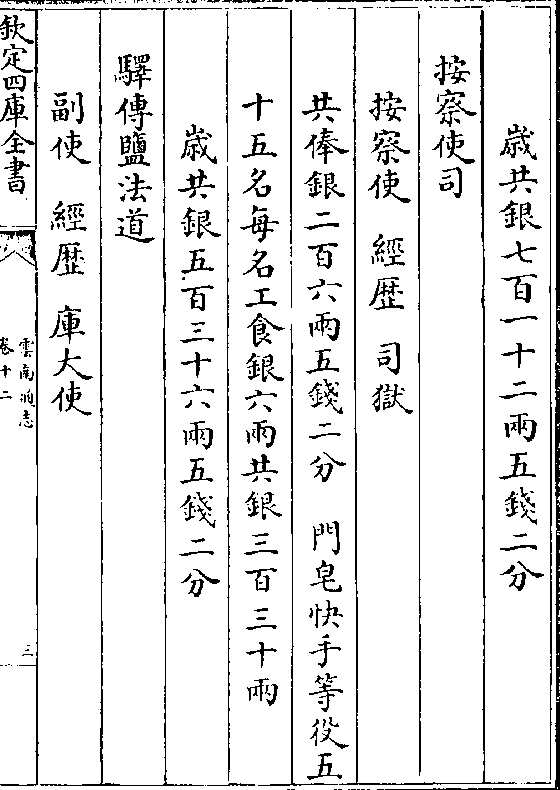 歲共銀七百一十二兩五錢二分
按察使司
按察使　經歷　司獄
共俸銀二百六兩五錢二分　門皂快手等役五
十五名每名工食銀六兩共銀三百三十兩
歲共銀五百三十六兩五錢二分
驛傳鹽法道
副使　經歷　庫大使
欽定四庫全書
雲南通志
卷十二
三